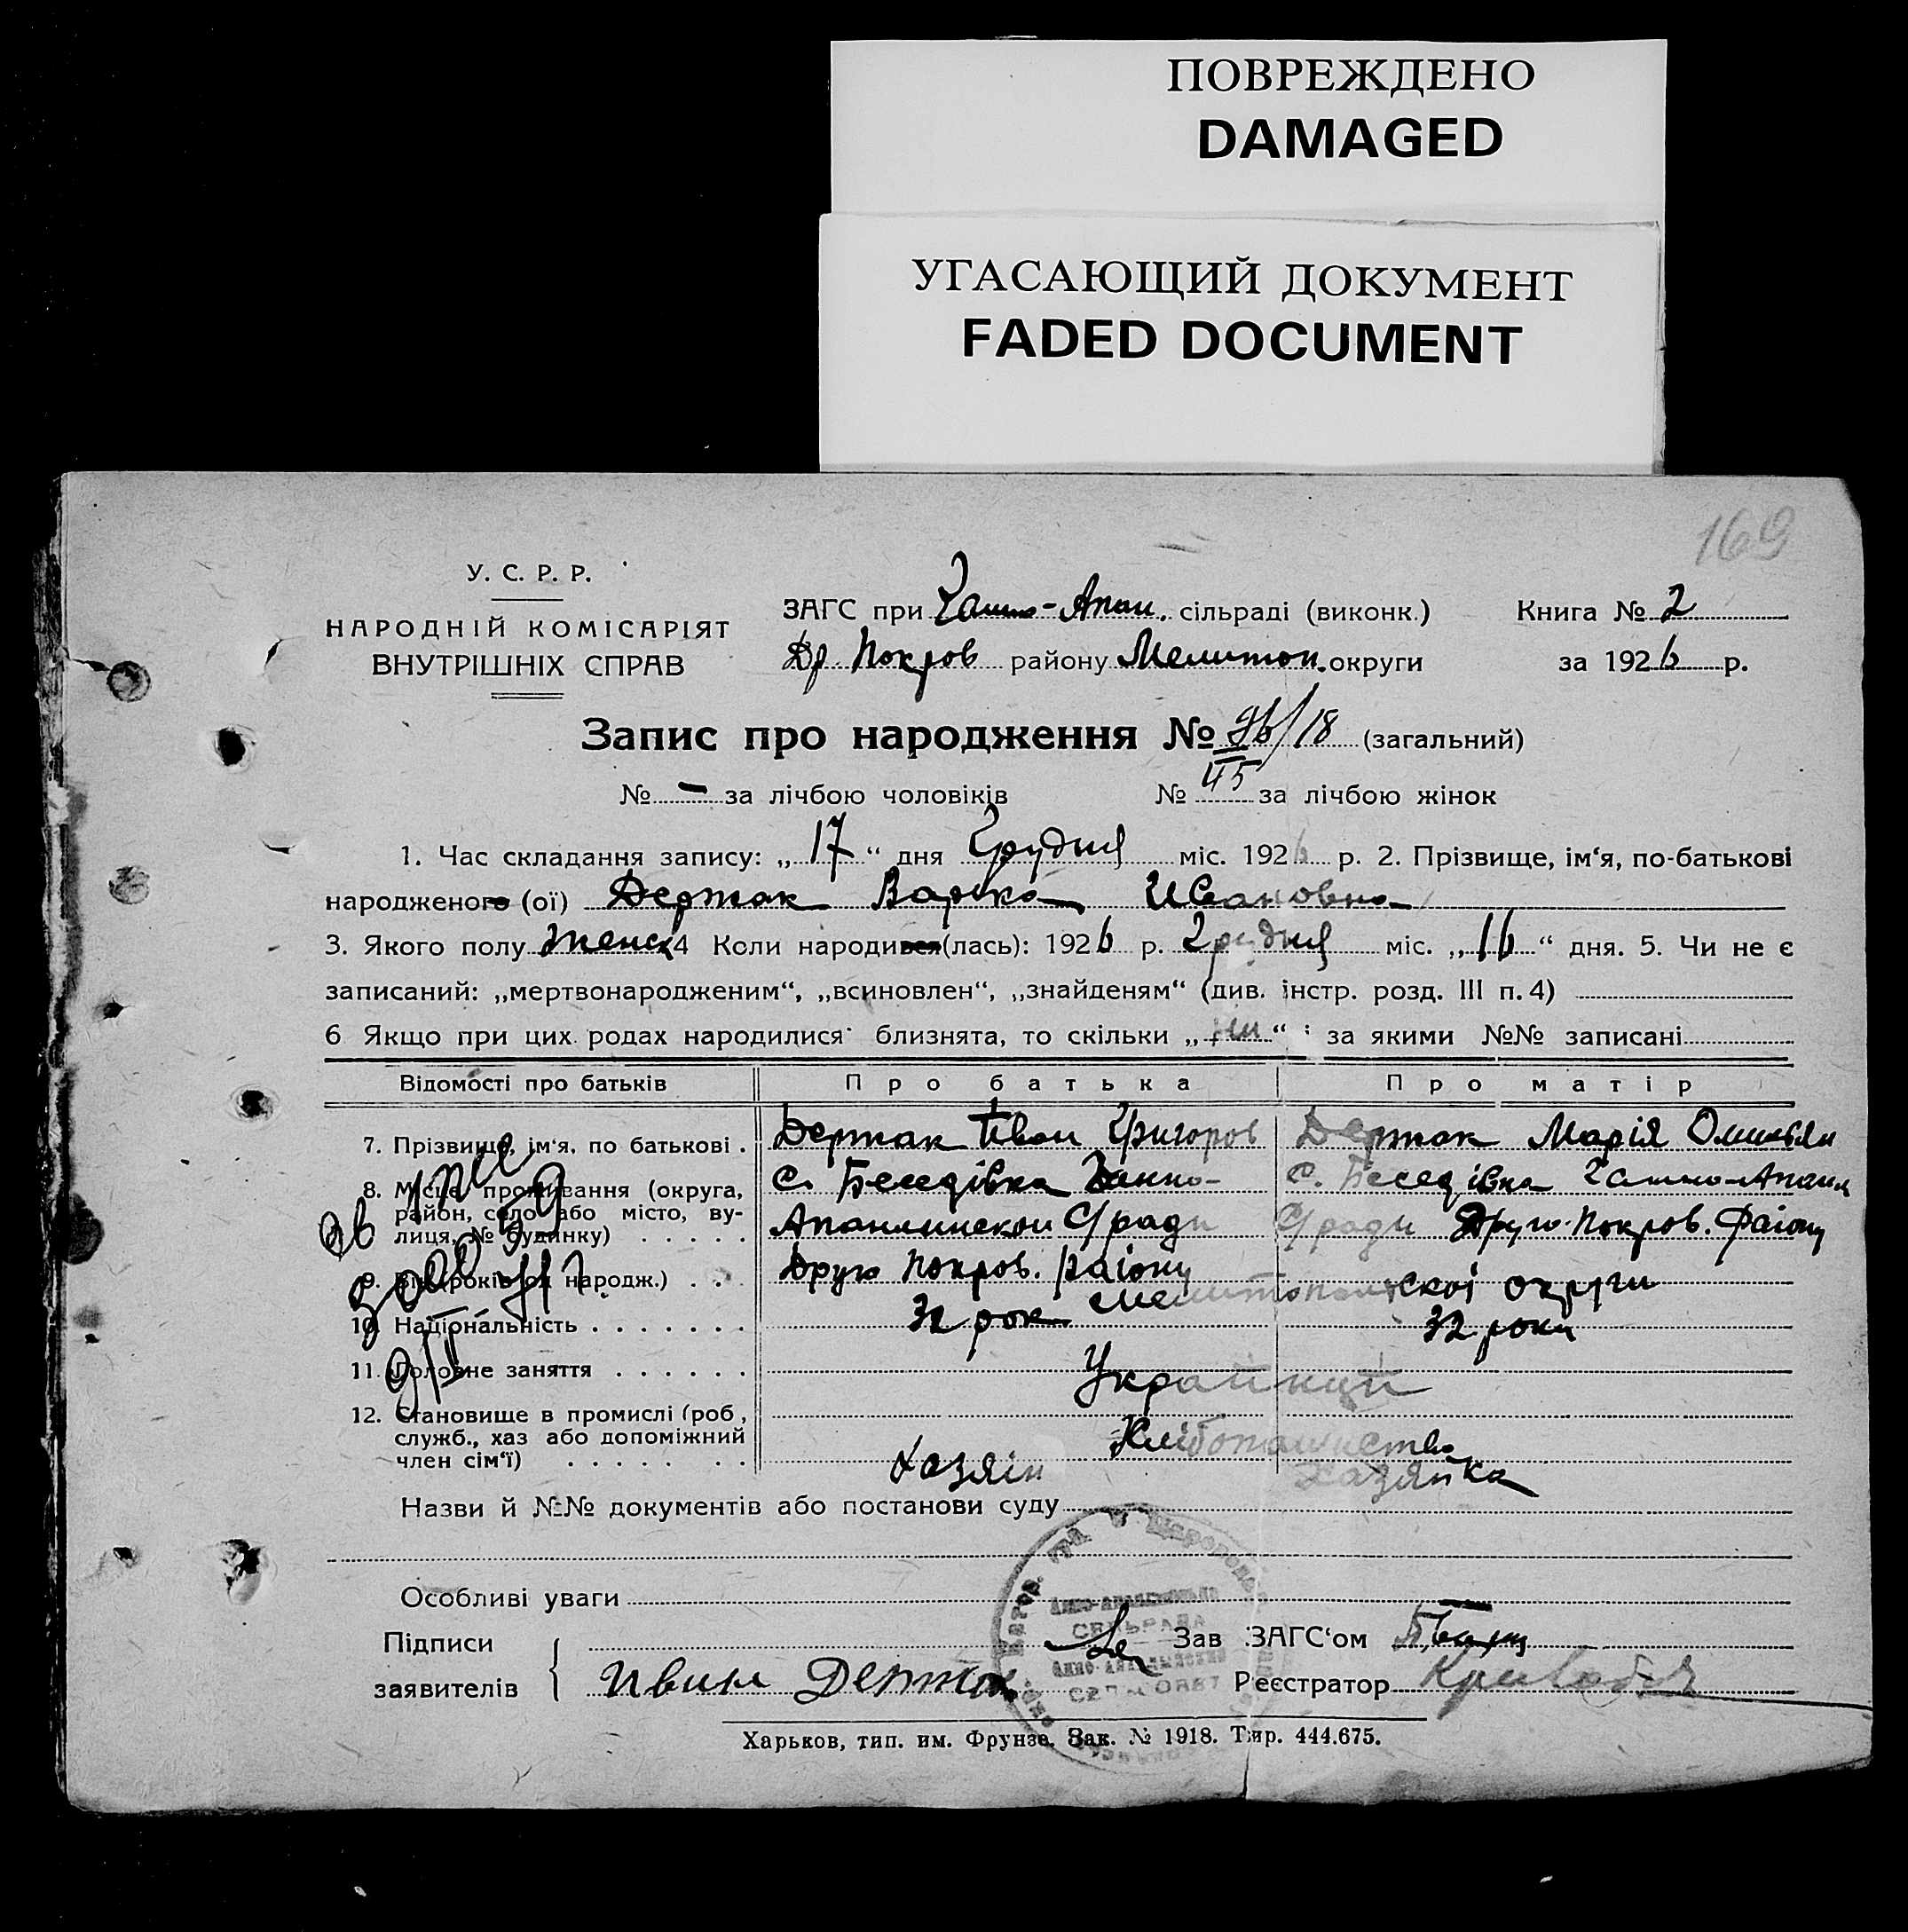 ПОВРЕЖДЕНО
DAMAGED
УГАСАЮЩИЙ ДОКУМЕНТ
FADED DOCUMENT
169
У. С. Р. Р.
НАРОДНІЙ КОМІСАРІЯТ
ВНУТРІШНІХ СПРАВ
ЗАГС при Ганно-Апан. сільраді (виконк.)
Др. Покров району Мелитоп. округи
Книга № 2
за 1926 р.
Запис про народження № 96/18 (загальний)
№ – за лічбою чоловіків № 45 за лічбою жінок
1. Час складання запису: „17“ дня Грудня міс. 1926 р. 2. Прізвище, ім‘я, по-батькові
народженого (ої) Держак Варька Ивановна
3. Якого полу женск 4 Коли народився(лась): 1926 р. Грудня міс. „16“ дня. 5. Чи не є
записаний: „мертвонародженим“, „всиновлен“, „знайденям“ (див. інстр. розд. III п. 4)
6 Якщо при цих родах народилися близнята, то скільки „ни“ : за якими №№ записані
Відомості про батьків Про батька Про матір
7. Прізвище, ім‘я, по батькові . Держак Іван Григоров Держак Марія Омельян
8. Місце проживання (округа, район, село або місто, вулиця, № будинку) . . . . .
с. Беседівка Ганно-
Апанлинскои С/ради
Друго Покров. району
с. Беседівка Ганно-Апанл
С/ради Друго-Покров. Району
Мелитопольскої округи
9. Вік (років од народж.) . . . 32 рок 32 роки
10. Національність . . . . . . . Українци
11. Головне заняття . . . . . . Хліборобство
12. Становище в промислі (роб., служб., хаз або допоміжний член сім‘ї) . . . . . . .
Хазяін Хазяйка
Назви й №№ документів або постанови суду
Особливі уваги
Підписи
заявителів
Иван Держак
Зав ЗАГС‘ом
Реєстратор
СЕЛЬРАДА
Харьков, тип. им. Фрунзе. Зак. № 1918. Тир. 444.675.